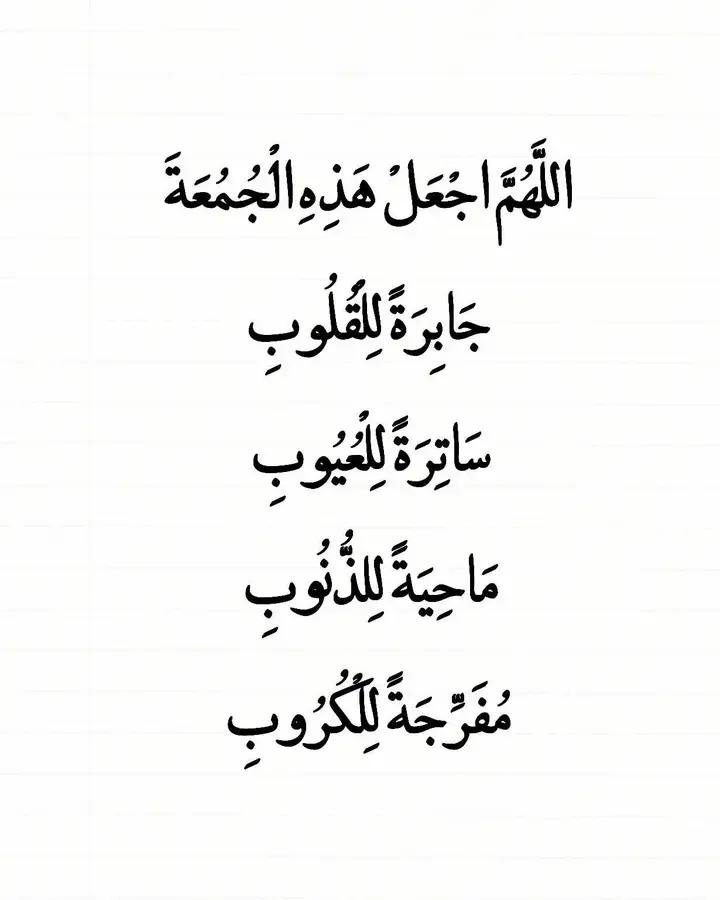 اللَّهُمَّ اجْعَلْ هَذِهِ الْجُمُعَةَ
جَابِرَةً لِلْقُلُوبِ
سَاتِرَةً لِلْعُيُوبِ
مَاحِيَةً لِلذُّنُوبِ
مُفَرِّجَةً لِلْكُرُوبِ